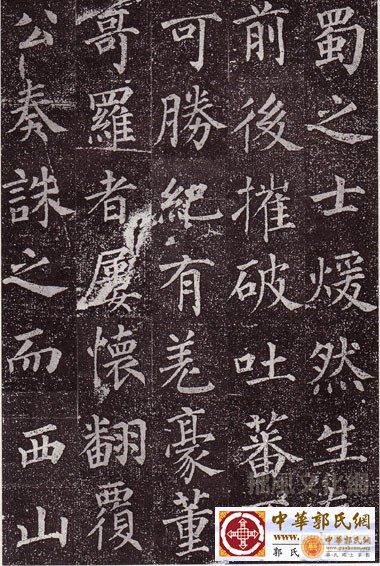 蜀之士煖然生
前後摧破吐蕃
可勝紀有羌豪董
哥羅者屢懷翻覆
公奏誅之而西山
中華郭氏網
www.
郭氏